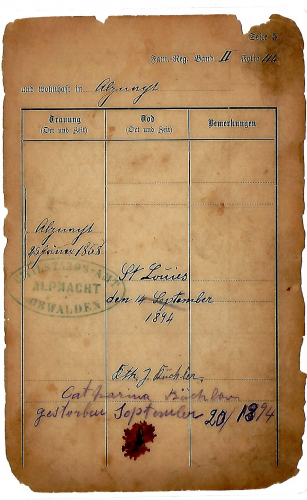 Seite 5
Fam.-Reg. Band II Folio 44
und wohnhaft in Alpnacht
Trauung
(Ort und Zeit)
Tod
(Ort und Zeit)
Bemerkungen
Alpnacht
25 Jänner 1868
ALPNACHT
OBWALDEN
St Louis
den 14 September
1894
J. Büchler
Catharina
gestorben September 20/1894